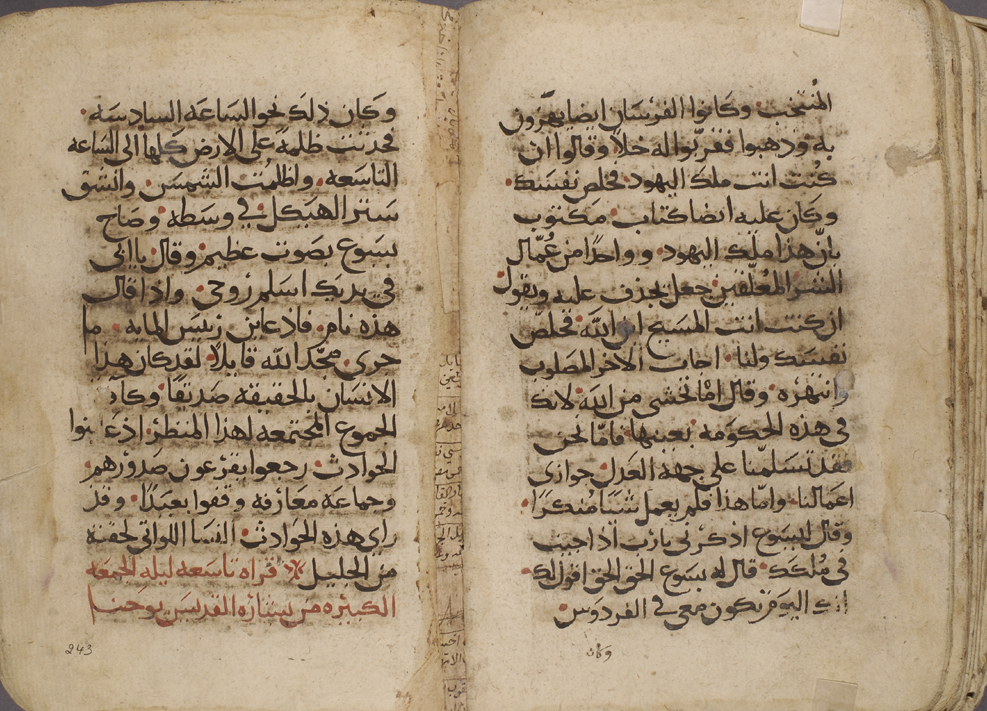 المنتخب وكانوا الفرسان ايضا يهزون
به ودهبوا فقربوا له خلا وقالوا ان
كنت انت ملك اليهود فخلص نفسك
وكان عليه ايضا كتاب مكتوب
بان هذا ملك اليهود وواحدا من عمال
الشر المعلقين جعل يجذف عليه ويقول
ان كنت انت المسيح ابن الله فخلص
نفسك ولنا اجاب الاخر المصلوب
وانتهره وقال اما تخشى من الله لانك
في هذه الحكومه بعينها فاما نحن
فقد تسلمنا على جهة العدل جوازي
اعمالنا واما هذا فلم يعمل شيئا منكرا
وقال ليسوع اذكرني يارب اذا جيت
في ملكك قال له يسوع الحق الحق اقول لك
انك اليوم تكون معي في الفردوس
وكان
وكان ذلك نحو الساعه السادسه
فحدثت ظلمة على الارض كلها الى الساعه
التاسعه واظلمت الشمس وانشق
ستر الهيكل في وسطه وصاح
يسوع بصوت عظيم وقال يا ابي
في يديك اسلم روحي واذ قال
هذه نام فاذ عاين رييس المايه ما
جرى مجد الله قايلا لقد كان هذا
الانسان بالحقيقه صديقا وكافة
الجموع المجتمعه لهذا المنظر اذ عاينوا
الحوادث رجعوا يقرعون صدورهم
وجماعة معارفه وقفوا بعيدا وقد
راى هذه الحوادث النسا اللواتي لحقنه
من الجليل قراه تاسعه ليلة الجمعه
الكبيره من بشارة القديس يوحنا
243